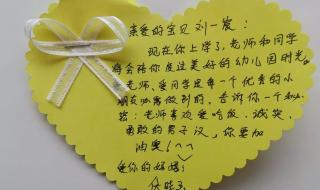 亲爱的宝贝刘一宸：
现在你上学了，老师和同学
将会陪你度过美好的幼儿园时光。
爱老师、爱同学是每一个优秀的小
朋友必需做到的，告诉你一个秘
密：老师喜欢爱吃饭、诚实、
勇敢的男子汉，你要加
油奥！^^
爱你的妈妈：